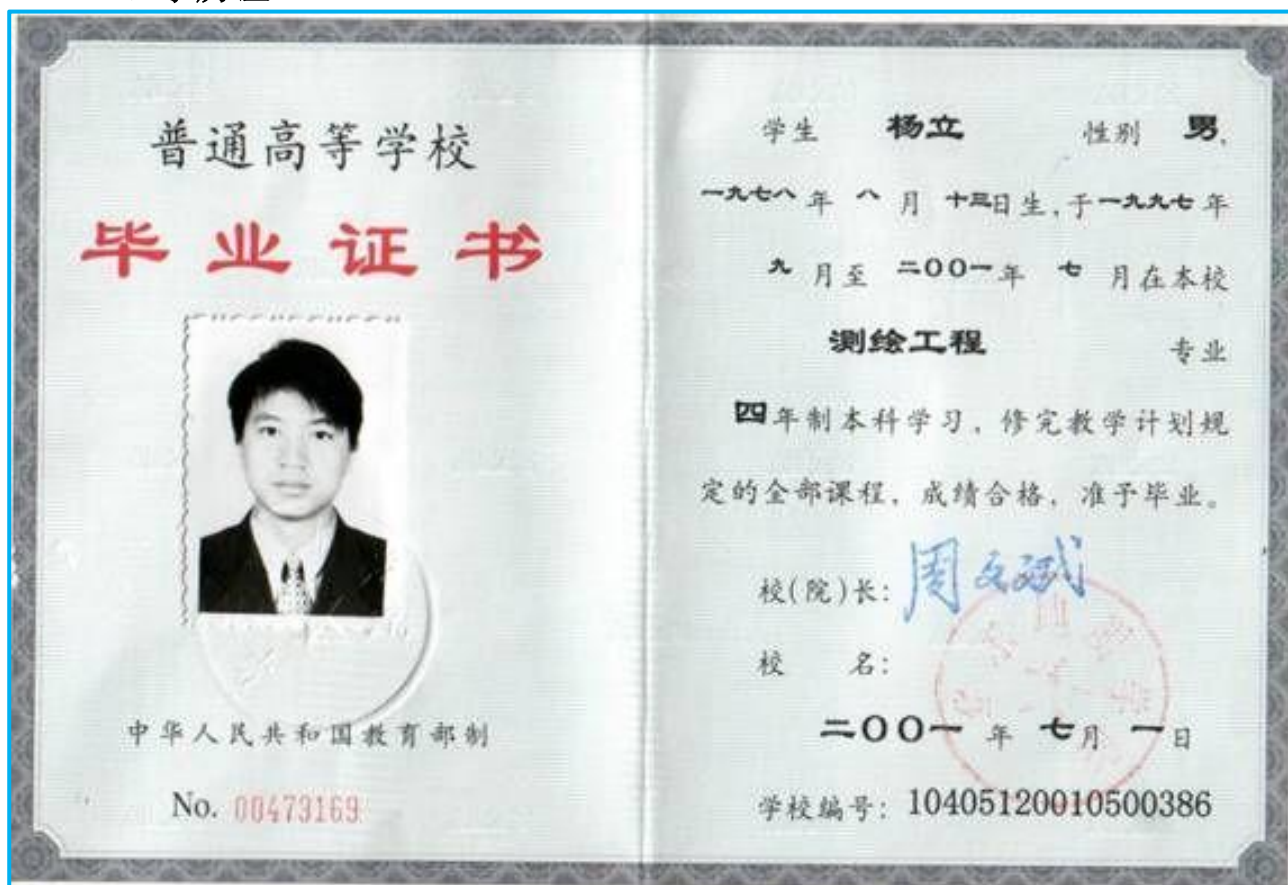 普通高等学校
毕业证书
中华人民共和国教育部制
No. 00473169
学生 杨立 性别 男,
一九七八年 八月 十三日生,于一九九七年
九月至 二〇〇一年 七月在本校
测绘工程 专业
四年制本科学习,修完教学计划规
定的全部课程,成绩合格,准予毕业。
校(院)长: 周文斌
校 名:
二〇〇一年 七月 一日
学校编号: 10405120010500386